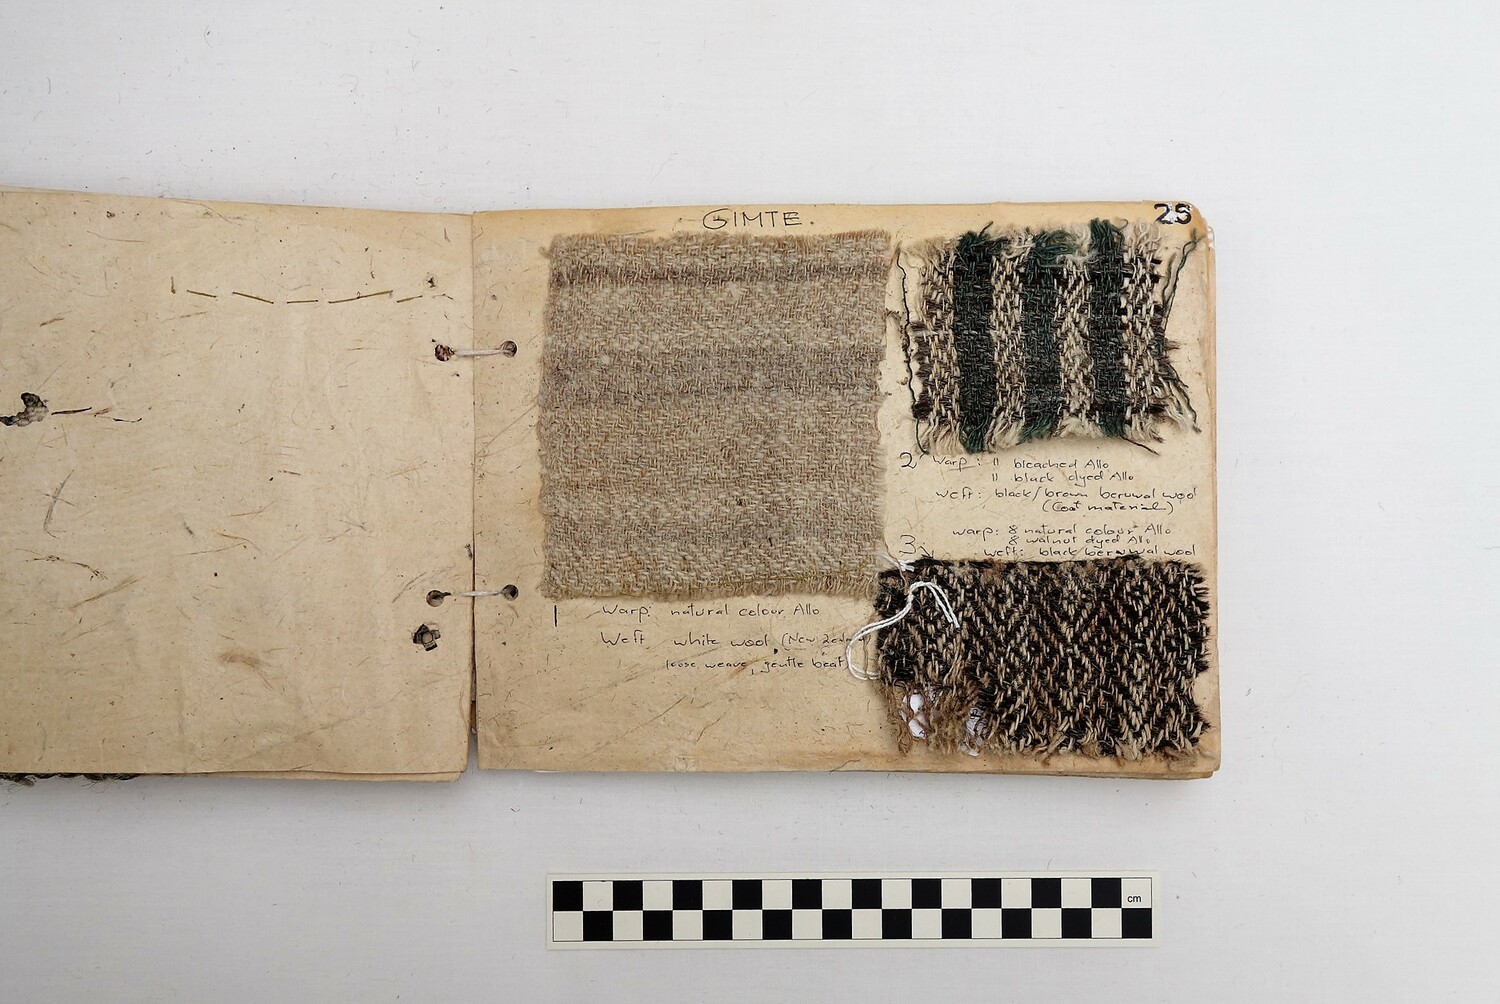 GIMTE.
25
1 Warp: natural colour Allo
Weft white wool (New
loose weave, gentle beat
2 Warp: 11 bleached Allo
11 black dyed Allo
Weft: black/brown beruwal wool
(Coat material)
3 warp: 8 natural colour Allo
8 walnut dyed Allo
weft: black beruwal wool
cm